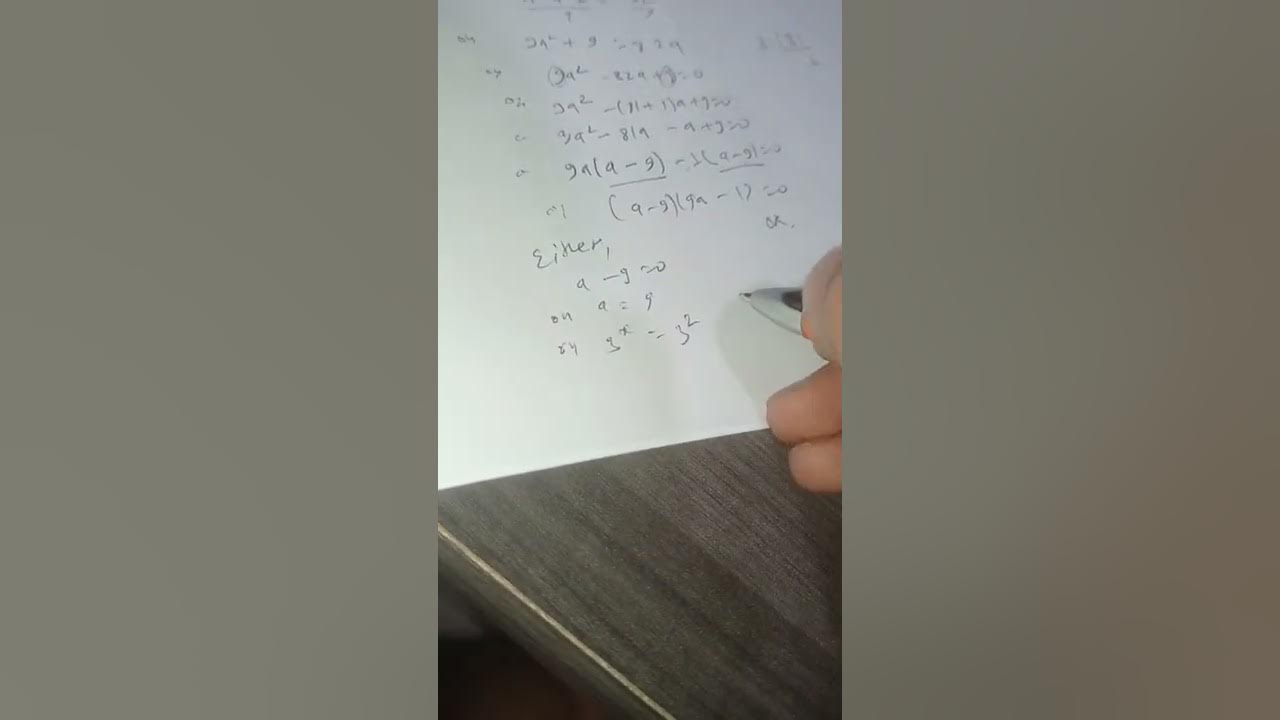 or 9a² + 9 = 82a
or 9a² - 82a + 9 = 0
or 9a² - (81 + 1)a + 9 = 0
or 9a² - 81a - a + 9 = 0
or 9a(a - 9) - 1(a - 9) = 0
or (a - 9)(9a - 1) = 0
OR.
Either,
a - 9 = 0
or a = 9
or 3ˣ = 3²